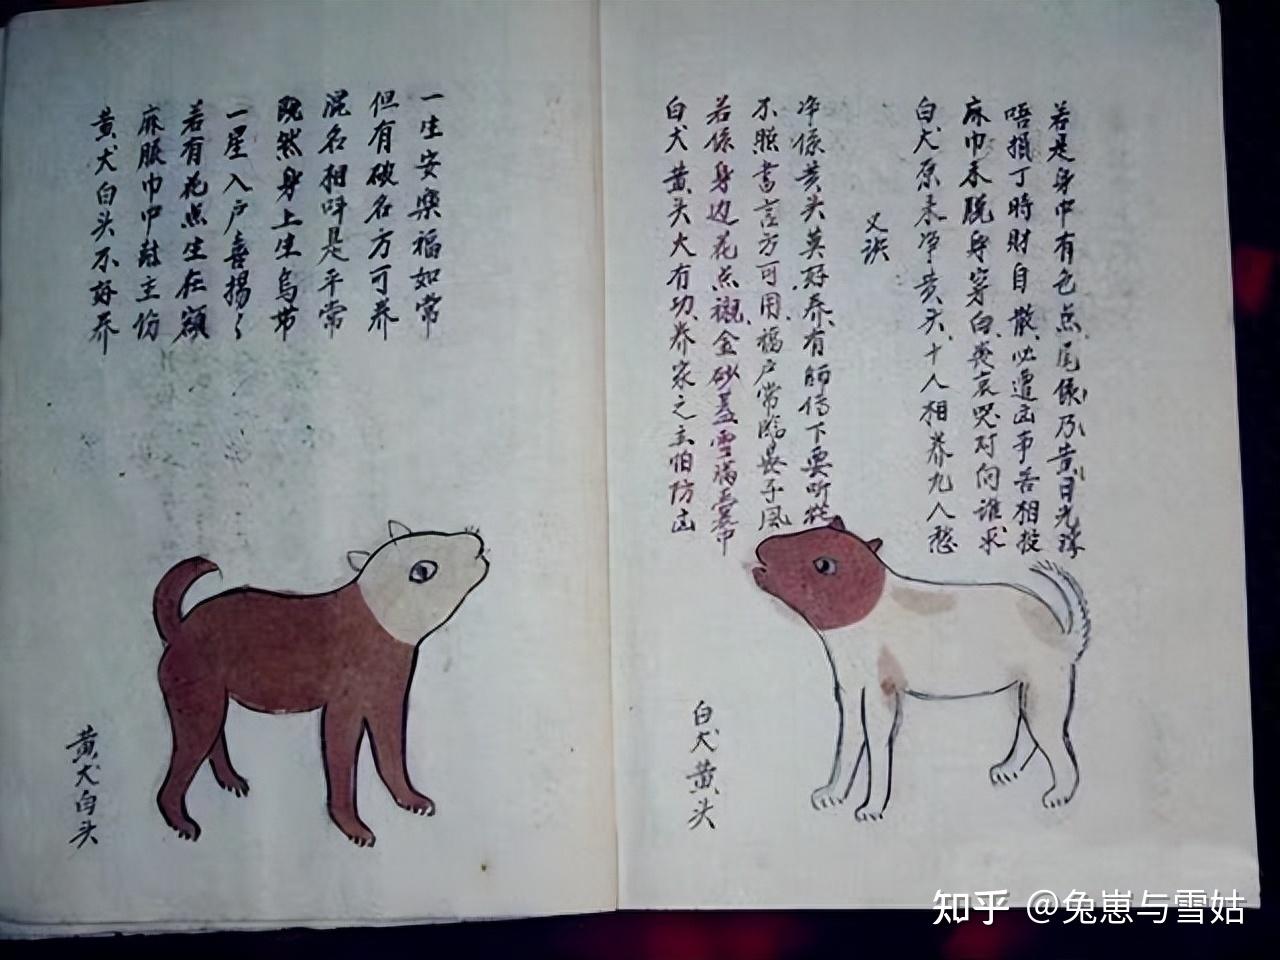 黄犬白头不好养
麻服巾巾對主伤
若有花点生在額
一星入户喜揚々
既然身上生烏带
混名相呌是平常
但有破名方可养
一生安樂福如常
黄犬白头
白犬黄头大有功养家之主怕防凶
若係身边花点襯金砂盖雪满堂中
不照書言方可用福户常臨長子風
净係黄头莫好养有師傅下要听從
又訣
白犬原来净黄头十人相养九人愁
麻巾未脱身穿白喪哀哭对向谁求
唔損丁時財自散必遭凶事苦相投
若是身中有色点尾係乃黄目光珠
白犬黄头
知乎 @兔崽与雪姑